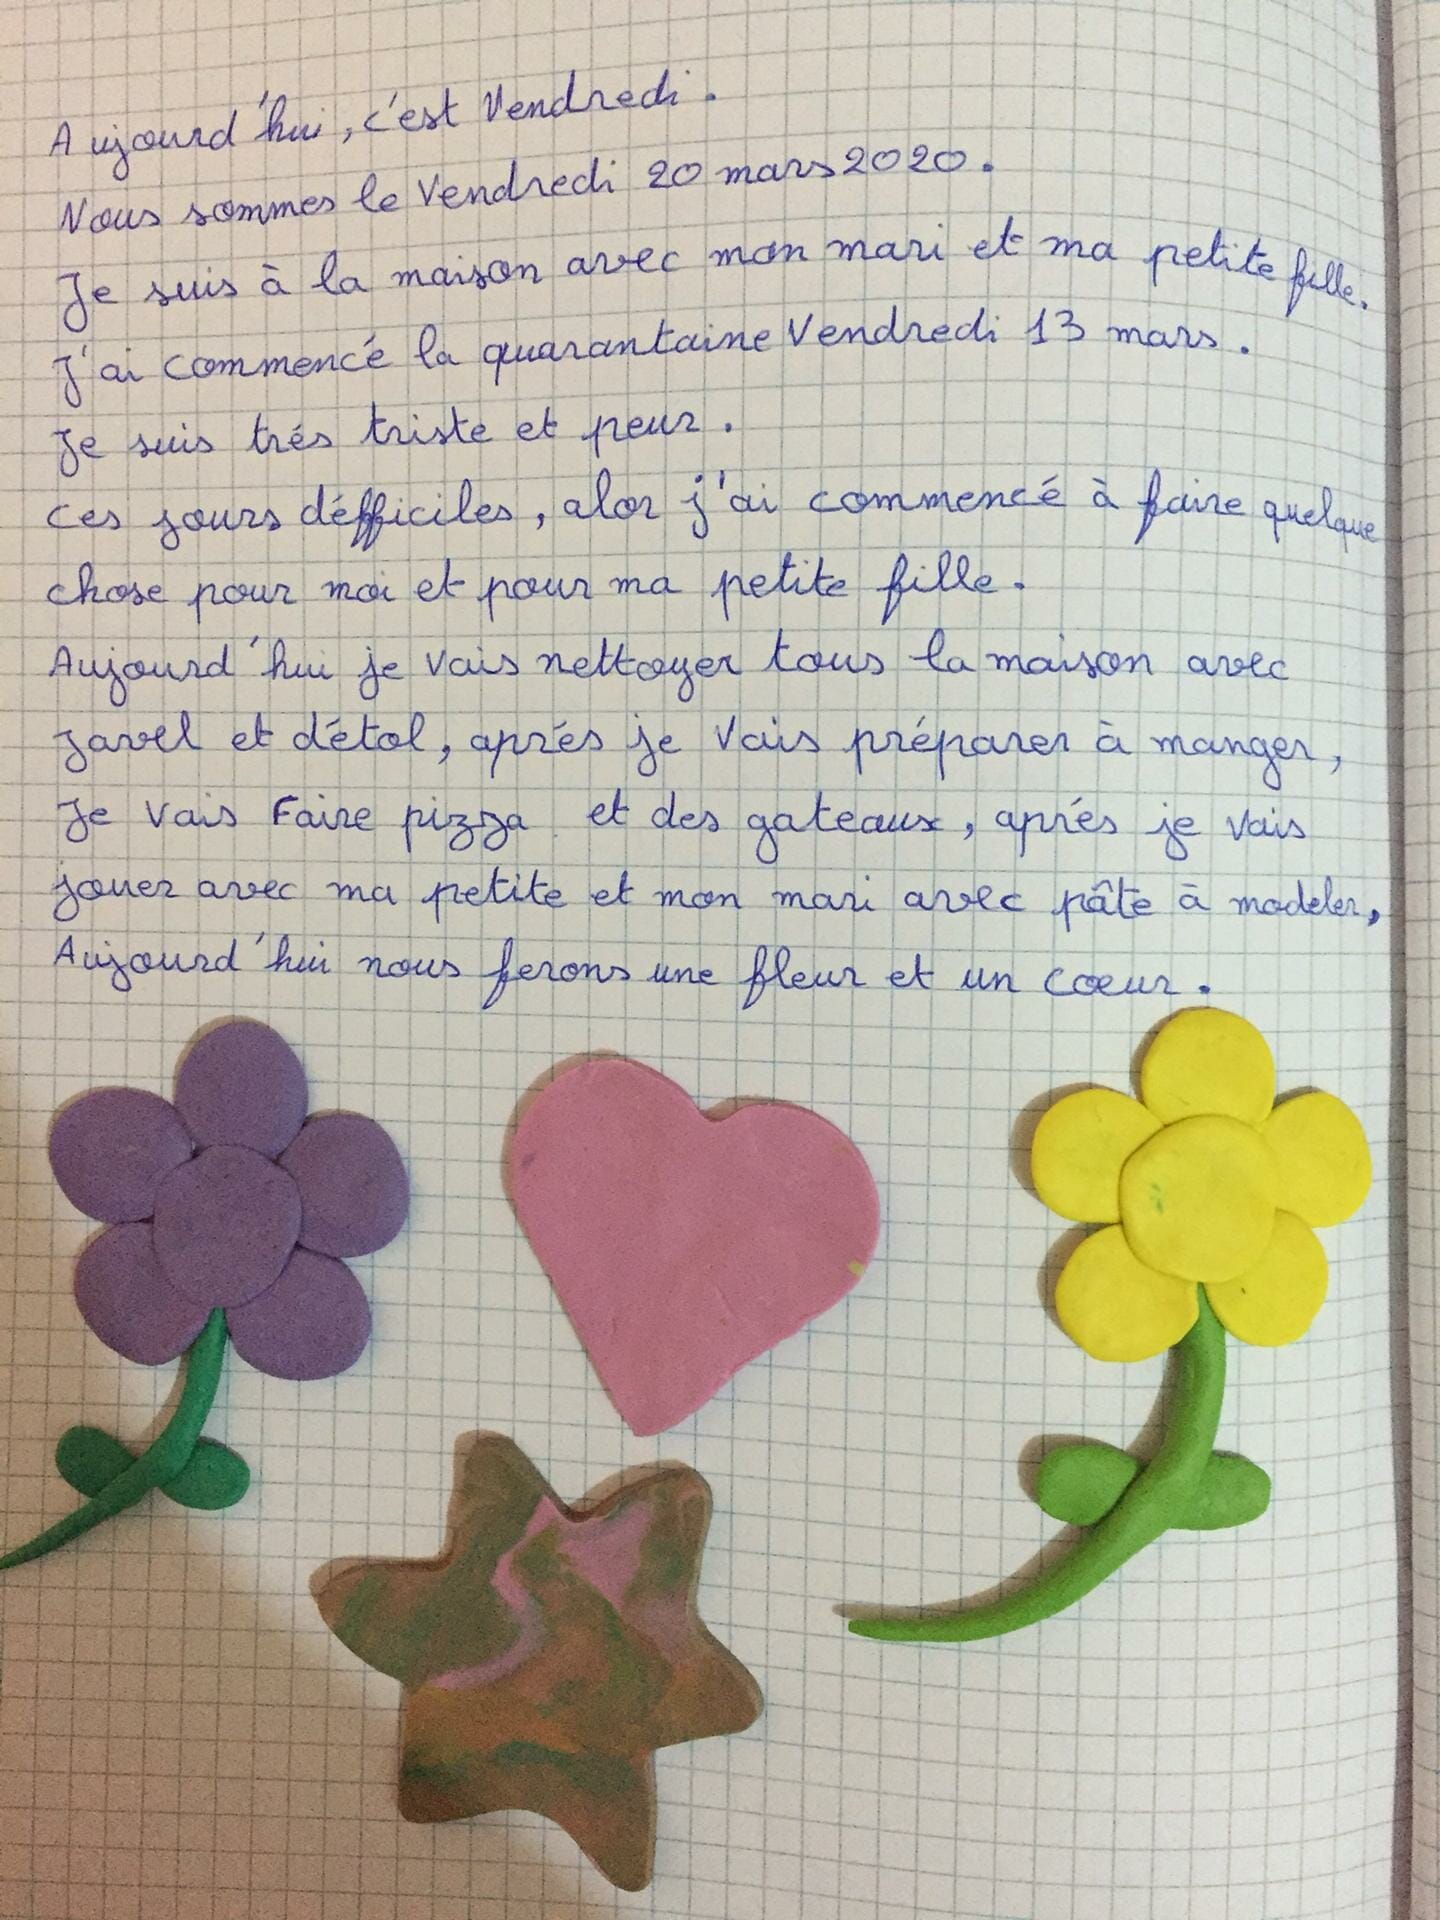 Aujourd'hui, c'est Vendredi.
Nous sommes le Vendredi 20 mars 2020.
Je suis à la maison avec mon mari et ma petite fille.
J'ai commencé la quarantaine Vendredi 13 mars.
Je suis trés triste et peur.
Ces jours défficiles, alor j'ai commencé à faire quelque
chose pour moi et pour ma petite fille.
Aujourd'hui je vais nettoyer tous la maison avec
javel et détol, aprés je vais préparer à manger,
Je vais Faire pizza et des gateaux, aprés je vais
jouer avec ma petite et mon mari avec pâte à modeler,
Aujourd'hui nous ferons une fleur et un cœur.